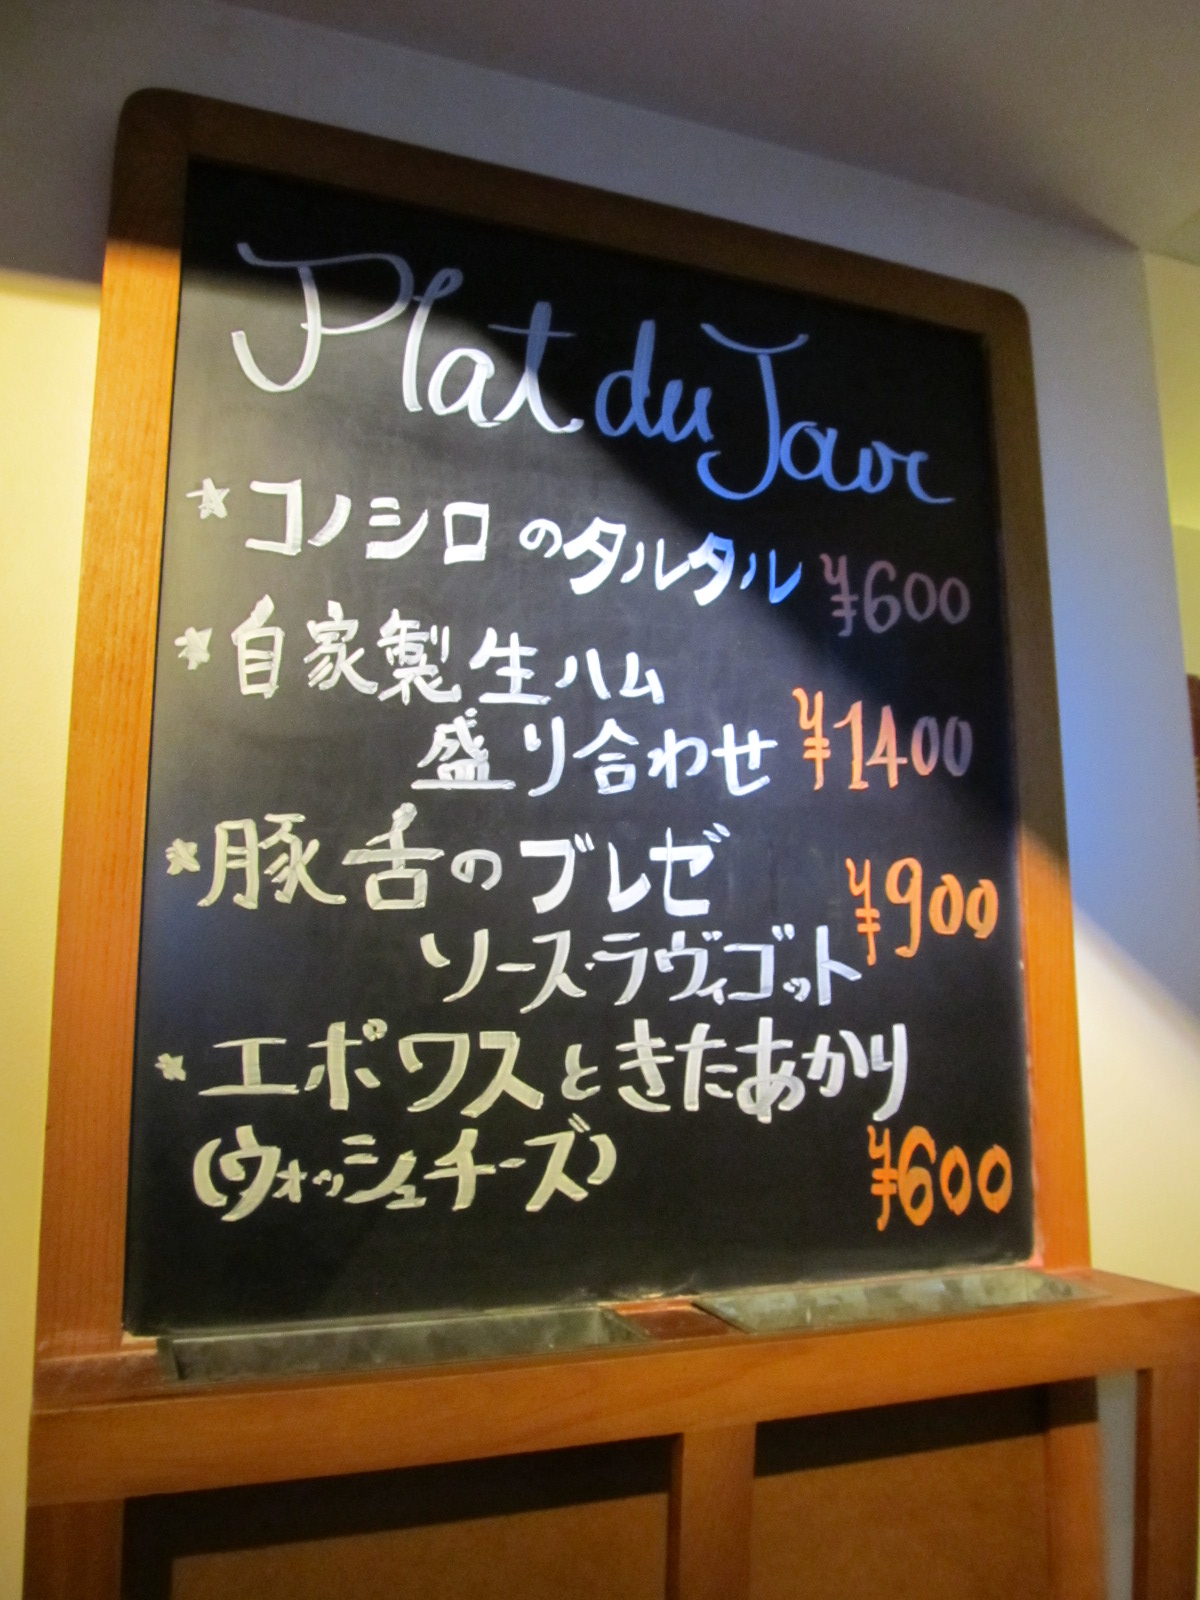 Plat du Jour
★コノシロのタルタル ¥600
★自家製生ハム
盛り合わせ ¥1400
★豚舌のブレゼ ¥900
ソース・ラヴィゴット
★エポワスときたあかり
(ウォッシュチーズ) ¥600